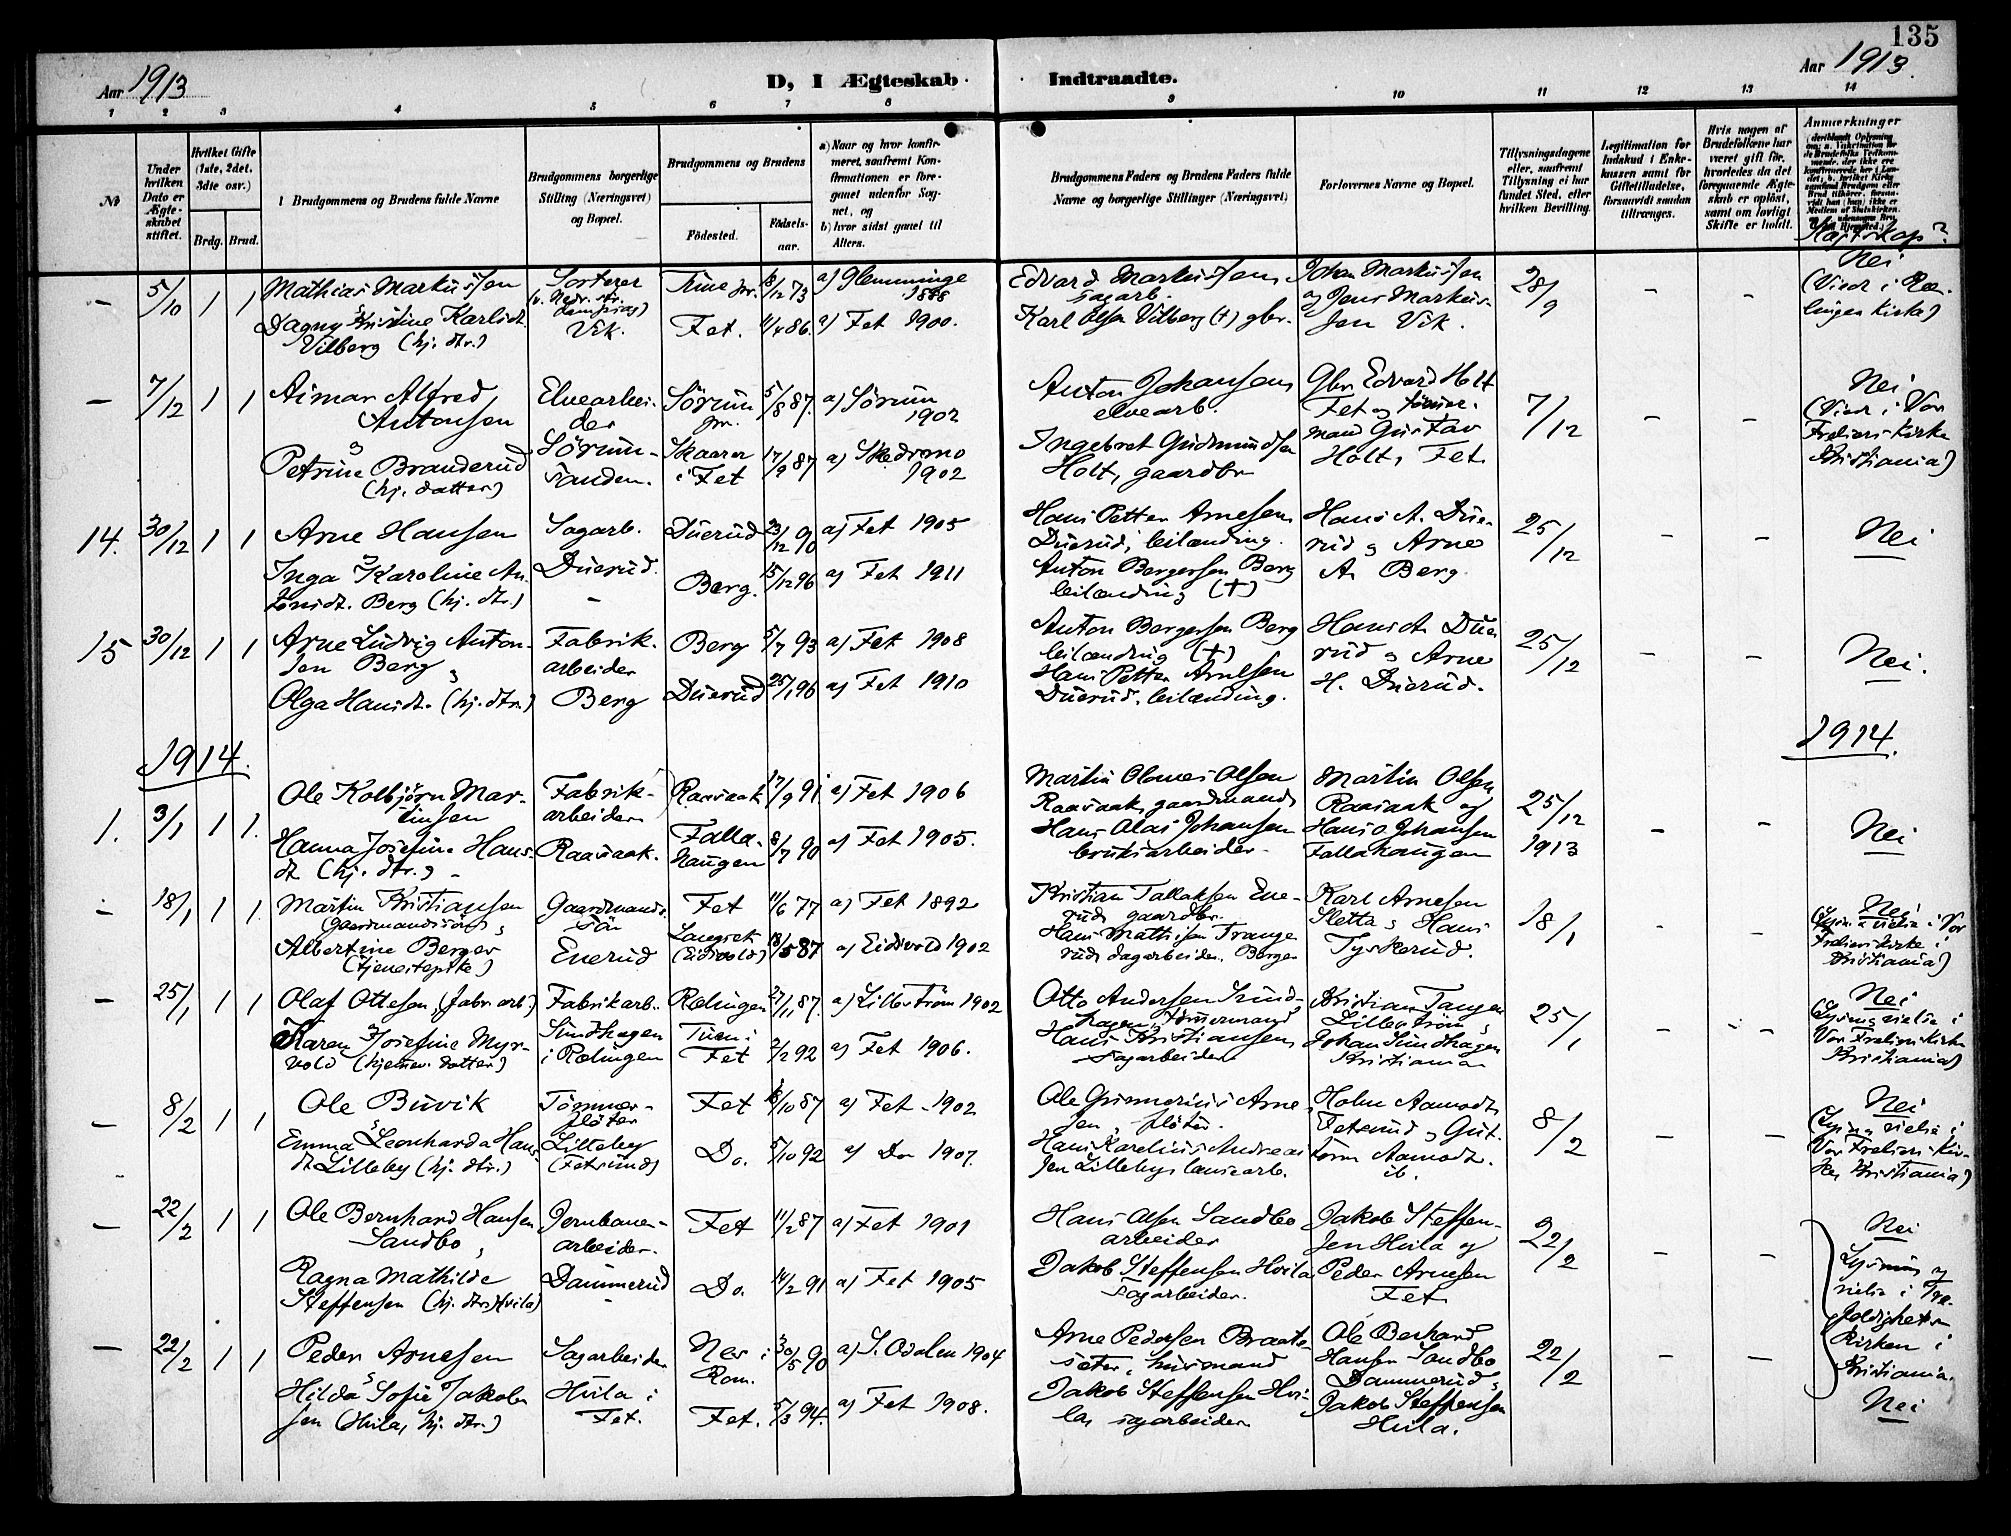 135
Aar 1913
D, I Ægteskab Indtraadte.
Aar 1913.
1 2 3 4 5 6 7 8 9 10 11 12 13 14
№
Under hvilken Dato er Ægteskabet stiftet.
Hvilket Gifte (1ste, 2det, 3dte osv.)
Brdg. Brud.
Brudgommens og Brudens fulde Navne
Brudgommens borgerlige Stilling (Næringsvei) og Bopæl.
Brudgommens og Brudens
Fødested. Fødselsaar.
a) Naar og hvor konfirmeret, saafremt Konfirmationen er foregaaet udenfor Sognet, og
b) hvor sidst gaaet til Alters.
Brudgommens Faders og Brudens Faders fulde Navne og borgerlige Stillinger (Næringsvei)
Forlovernes Navne og Bopæl.
Tillysningsdagene eller, saafremt Tillysning ei har fundet Sted, efter hvilken Bevilling.
Legitimation for Indskud i Enkekassen samt for Giftetilladelse, forsaavidt saadan tiltrænges.
Hvis nogen af Brudefolkene har været gift før, hvorledes da det foregaaende Ægteskab er opløst, samt om lovligt Skifte er holdt.
Anmærkninger
Slægtskap?
— 5/10 1 1 Mathias Markussen Sorterer Trune 73 a) Glemminge 1888 Edvard Markussen sagarb. Johan Markussen og Jens Markus- 28/9 - - Nei
Dagny Kristine Karlsdt. Vilberg (hj. dtr.) Vik. Fet. 4/4 86. a) Fet 1900. Karl Olsen Vilberg (+) gbr. sen Vik. (Viet i Rælingen Kirke)
— 7/12 1 1 Aimar Alfred Antonsen Elvearbeider Sörum 5/8 87. a) Sörum 1902 Anton Johansen elvearb. Gbr Edvard Holt Fet og tömmer- 7/12 - - Nei
Petrine Branderud (hj. datter) Sörumsanden. Skaarer i Fet 17/9 87 a) Skedsmo 1902 Ingebret Gudmundsen Holt, gaardbr mand Gustav Holt, Fet (Viet i Vor Frelsers Kirke Kristiania)
14. 30/12 1 1 Arne Hansen Sagarb. Duerud 23/12 90 a) Fet 1905 Hans Petter Arnesen Duerud, leilænding. Hans A. Duerud og Arne 25/12 - - Nei
Inga Karoline Antonsdt. Berg (hj. dtr.) Duerud. Berg. 15/12 96 a) Fet 1911 Anton Bergersen Berg leilænding (+) A. Berg.
15 30/12 1 1 Arne Ludvig Antonsen Berg Fabrikarbeider Berg 5/7 93 a) Fet 1908 Anton Bergersen Berg leilænding (+) Hans A. Duerud og Arne 25/12 - - Nei.
Olga Hansdt. (hj. dtr.) Berg Duerud 25/1 96 a) Fet 1910 Hans Petter Arnesen Duerud, leilænding. H. Duerud.
1914. 1914.
1. 3/1 1 1. Ole Kolbjörn Martinsen Fabrikarbeider Raasaak 17/9 91 a) Fet 1906 Martin Olsen Raasaak, gaardmand Martin Olsen Raasaak og 25/12 1913 - - Nei
Hanna Josefine Hansdt (hj. dtr.) Raasaak. Fallahaugen 8/7 90 a) Fet 1905. Hans Olai Johansen bruksarbeider. Hans O. Johansen Fallahaugen
— 18/1 1 1. Martin Kristiansen (gaardmandssön) Gaardmandssön Fet 11/6 77 a) Fet 1892 Kristian Tallaksen Enerud, gaardbr. Karl Arnesen Sletta og Hans 18/1 - - Nei
Albertine Berger (tjenestepike) Enerud (Eidsvold) 87 a) Eidsvold 1902 Hans Mathisen dagarbeider. Berger Tyskerud. (Lysn. og vielse i Vor Frelsers Kirke i Kristiania)
— 25/1 1 1 Olaf Ottesen (fabr. arb.) Fabrikarb. Rælingen 27/11 87. a) Lilleström 1902 Otto Andersen Sundhagen, tömmermand Kristian Tangen Lilleström, 25/1 - - Nei
Karen Josefine Myrvold (hjemv. datter) Sundhagen i Rælingen Tuen i Fet 2/2 92 a) Fet 1906. Hans Kristiansen sagarbeider Johan Sundhagen Kristiania (Lysning og vielse i Vor Frelsers Kirke Kristiania)
— 8/2 1 1 Ole Buvik Tömmerflöter Fet 87 a) Fet - 1902 Ole Gunnerius Arnesen, flöter. Holm Aamodt, Fetsund og Gut- 8/2 - - Nei
Emma Leonharda Hansdt Lilleby (hj. dtr.) Lilleby (Fetsund) Do. 5/10 92 a) Do 1907. Hans Karelius Andreassen Lilleby, lensearb. torm Aamodt. ib. (Lysn. og vielse i Vor Frelsers Kirke, Kristiania)
— 22/2 1 1 Ole Bernhard Hansen Sandbo, Jernbanearbeider. Fet 11/2 87 a) Fet 1901 Hans Olsen Sandbo arbeider Jakob Steffensen Hvila og 22/2 - - Nei
Ragna Mathilde Steffensen (hj. dtr.) Hvila) Dammerud Do. 14/2 91 a) Fet 1905 Jakob Steffensen Hvila sagarbeider. Peder Arnesen Fet Lysning og vielse i Trefoldighetskirken i Kristiania.
— 22/2 1 1 Peder Arnesen Sagarbeider Nes i Rom. 30/5 90 a) S. Odalen 1904 Arne Pedersen Braateseter, husmand Ole Berhard Hansen Sandbo Dammerud, 22/2 - —
Hilda Sofie Jakobsen (Hvila, hj. dtr.) Hvila i Fet. Fet. 5/3 94. a) Fet 1908. Jakob Steffensen Hvila, sagarbeider Jakob Steffensen Hvila. Nei